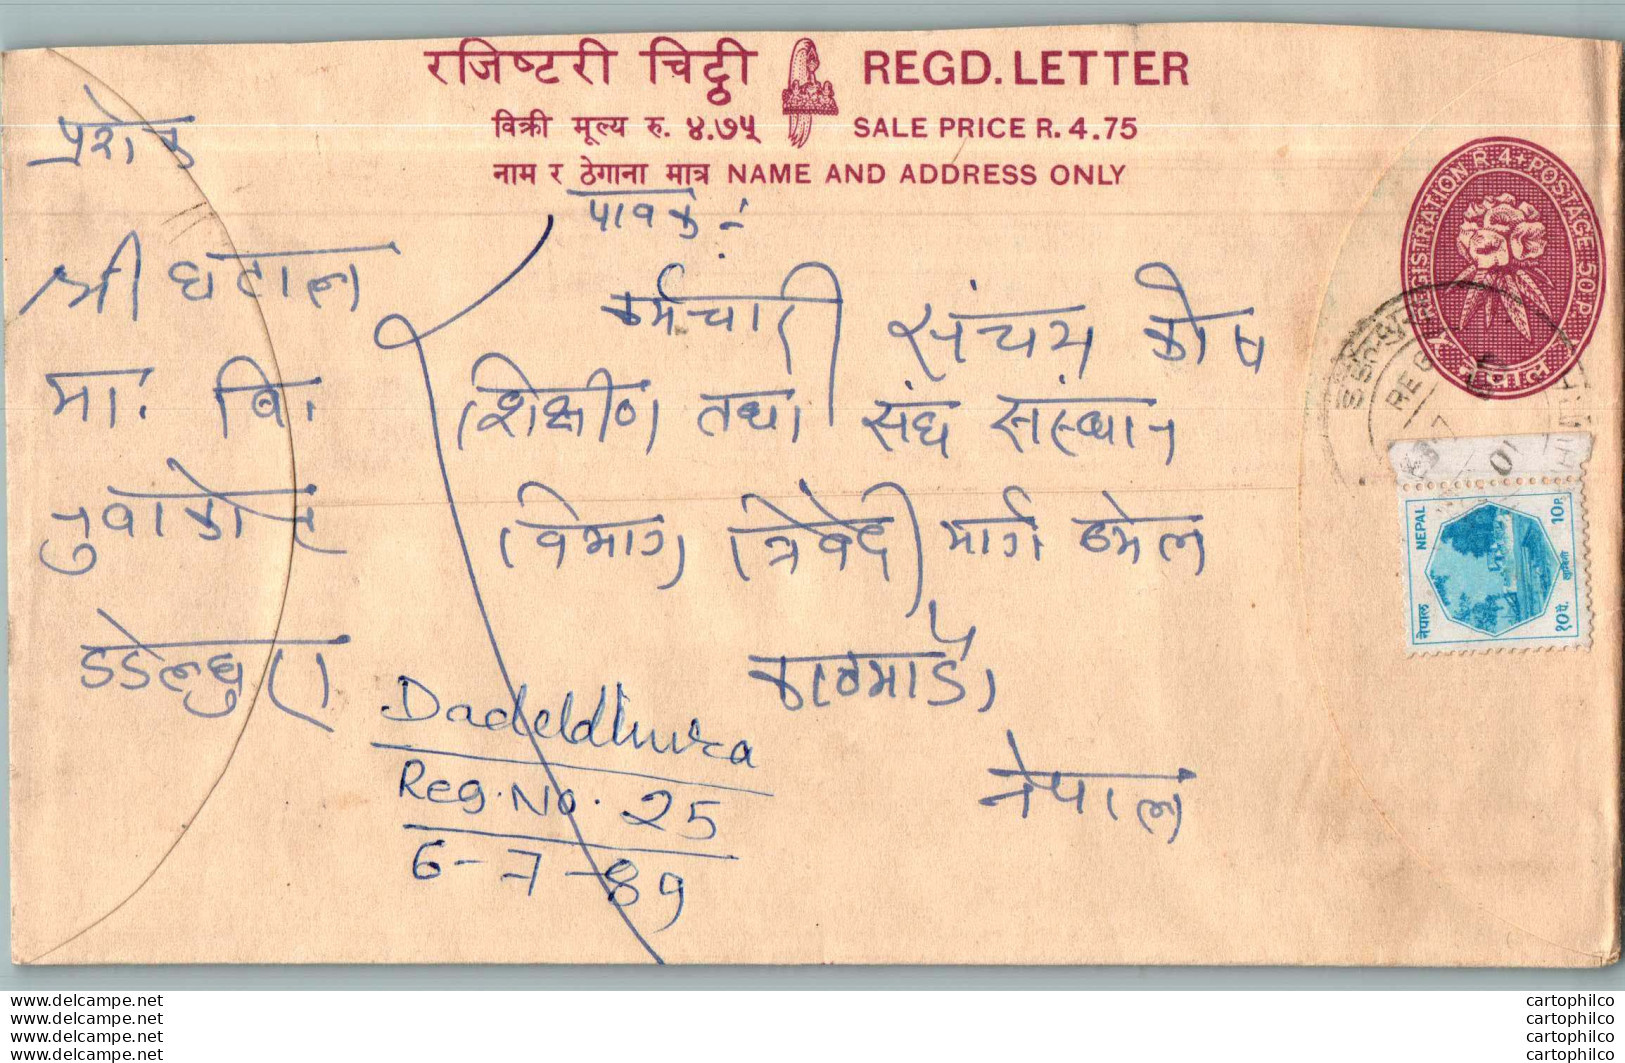 रजिष्टरी चिट्ठी REGD. LETTER
विक्री मूल्य रु. ४.७५ SALE PRICE R. 4.75
नाम र ठेगाना मात्र NAME AND ADDRESS ONLY
REGISTRATION R 4 + POSTAGE 50 P.
नेपाल
प्रशोक
श्री घटाल
मा. बि.
नुवाकोट
डडेल्धुरा
पावक :-
कर्मचारी संचय कोष
शिक्षण तथा संघ संस्थान
विभाग त्रिवेदी मार्ग ठमेल
काठमाडौं
नेपाल
Dadeldhura
Reg. No. 25
6-7-89
NEPAL 10 P.
नेपाल १० पै.
www.delcampe.net
www.delcampe.net
www.delcampe.net
www.delcampe.net
cartophilco
cartophilco
cartophilco
cartophilco